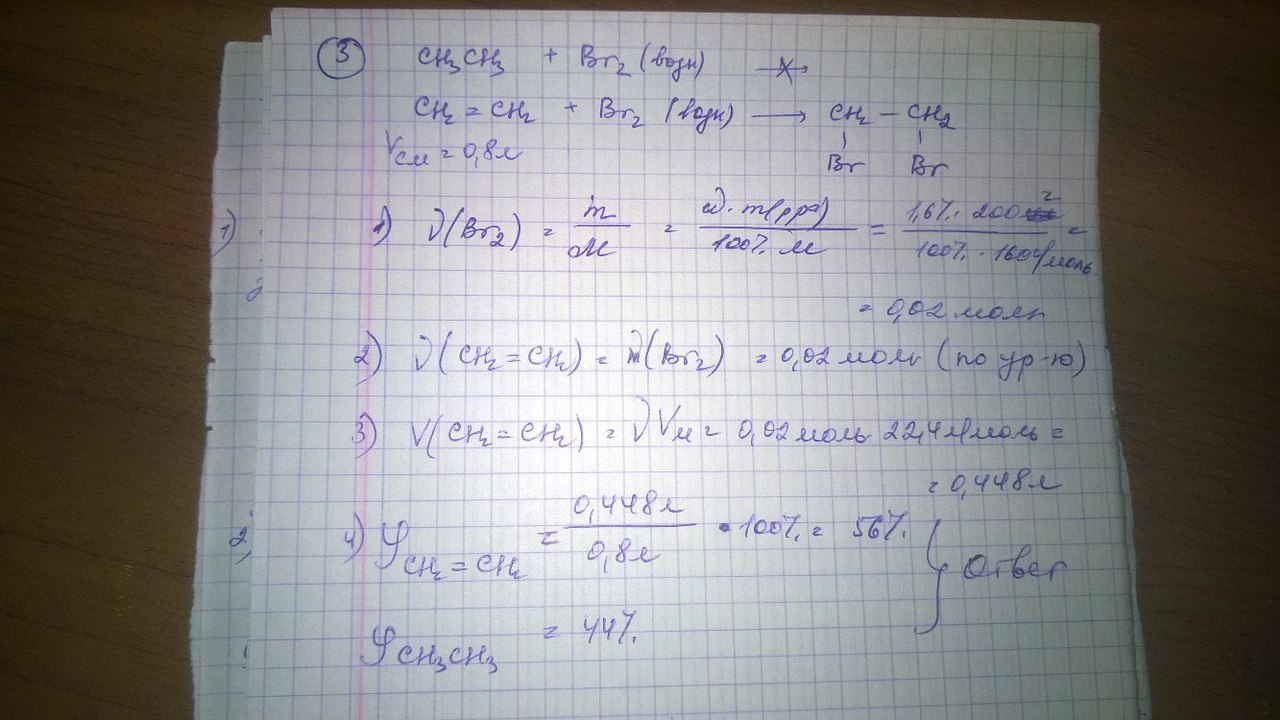 3 CH₃CH₃ + Br₂ (водн) ↛
CH₂ = CH₂ + Br₂ (водн) ⟶ CH₂ – CH₂
Vсм = 0,8л Br Br
1) ν(Br₂) = m/M = ω·m(р-ра)/100%·M = 1,6%·200г/100%·160г/моль =
= 0,02 моль
2) ν(CH₂ = CH₂) = ν(Br₂) = 0,02 моль (по ур-ю)
3) V(CH₂ = CH₂) = νVм = 0,02 моль 22,4 л/моль =
= 0,448л
4) φ CH₂ = CH₂ = 0,448л/0,8л · 100% = 56% } Ответ
φ CH₃CH₃ = 44%
1)
2)